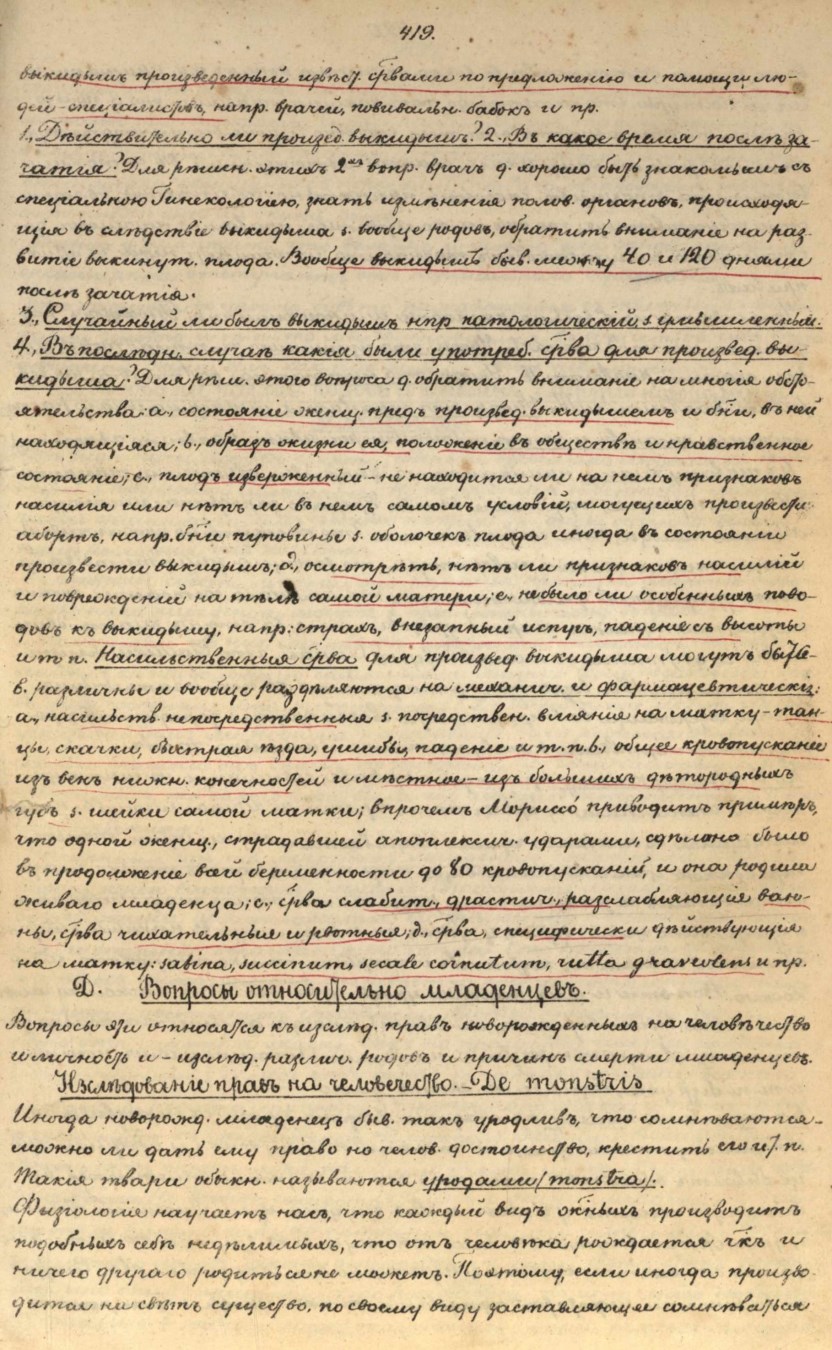 419.
выкидышъ произведенный извѣст. ср̃вами по предложенію и помощи лю-
дей-спеціалистовъ, напр. врачей, повивальн. бабокъ и пр.
1., Дѣйствительно ли произвед. выкидышъ? 2., Въ какое время послѣ за-
чатія? Для рѣшен. этихъ 2хъ вопр. врачъ д. хорошо быть знакомымъ съ
спеціальною Гинекологіею, знать измѣненія полов. органовъ, происходя-
щія въ слѣдствіе выкидыша s. вообще родовъ, обратить вниманіе на раз-
витіе выкинут. плода. Вообще выкидышъ быв. между 40 и 120 днями
послѣ зачатія.
3., Случайный ли былъ выкидышъ нпр патологическій, s
4., Въ послѣдн. случаѣ какія были употреб. ср̃ва для произвед. вы-
кидыша? Для рѣш. этого вопроса д. обратить вниманіе на многія обсто-
ятельства: a., состояніе женщ. предъ произвед. выкидышемъ и въ ней
находящіяся; b., образъ жизни ея, положеніе въ обществѣ и нравственное
состояніе; c., плодъ изверженный - не находится ли на немъ признаковъ
насилія или нѣтъ ли въ немъ самомъ условій, могущихъ произвести
абортъ, напр. пуповины s. оболочекъ плода иногда въ состояніи
произвести выкидышъ; d., осмотрѣть, нѣтъ ли признаковъ насилій
и поврежденій на тѣлѣ самой матери; e., не было ли особенныхъ пово-
довъ къ выкидышу, напр: страхъ, внезапный испугъ, паденіе съ высоты
и т п. Насильственныя ср̃ва для произвед. выкидыша могутъ быть
в. различны и вообще раздѣляются на механич. и фармацевтическія:
a., насильств. непосредственныя s. посредствен. вліянія на матку - тан-
цы, скачки, быстрая ѣзда, ушибы, паденіе и т. п. b., общее кровопусканіе
изъ венъ нижн. конечностей и мѣстное - изъ большихъ дѣтородныхъ
губъ s. шейки самой матки; впрочемъ Мориссо приводитъ примѣръ,
что одной женщ., страдавшей апоплексич. ударами, сдѣлано было
въ продолженіе всей беременности до 80 кровопусканій, и она родила
живаго младенца; c., ср̃ва слабит., драстич., разслабляющія ван-
ны, ср̃ва чихательныя и рвотныя; d., ср̃ва, специфически дѣйствующія
на матку: sabina, succinum, secale cornutum, rutta graveolens и пр.
D. Вопросы относительно младенцевъ.
Вопросы эти относятся къ изслѣд. правъ новорожденныхъ на человѣчество
и личность и - изслѣд. различ. родовъ и причинъ смерти младенцевъ.
Изслѣдованіе правъ на человечество. - De monstris
Иногда новорожд. младенецъ быв. такъ уродливъ, что сомнѣваются -
можно ли дать ему право на челов. достоинство, крестить его и т. п.
Такія твари обыкн. называются уродами /monstra/.
Физіологія научаетъ насъ, что каждый видъ производитъ
подобныхъ себѣ недѣлимыхъ, что отъ человѣка рождается и
ничего другаго родиться не можетъ. Поэтому, если иногда произво-
дится на свѣтъ существо, по своему виду заставляющее сомнѣваться